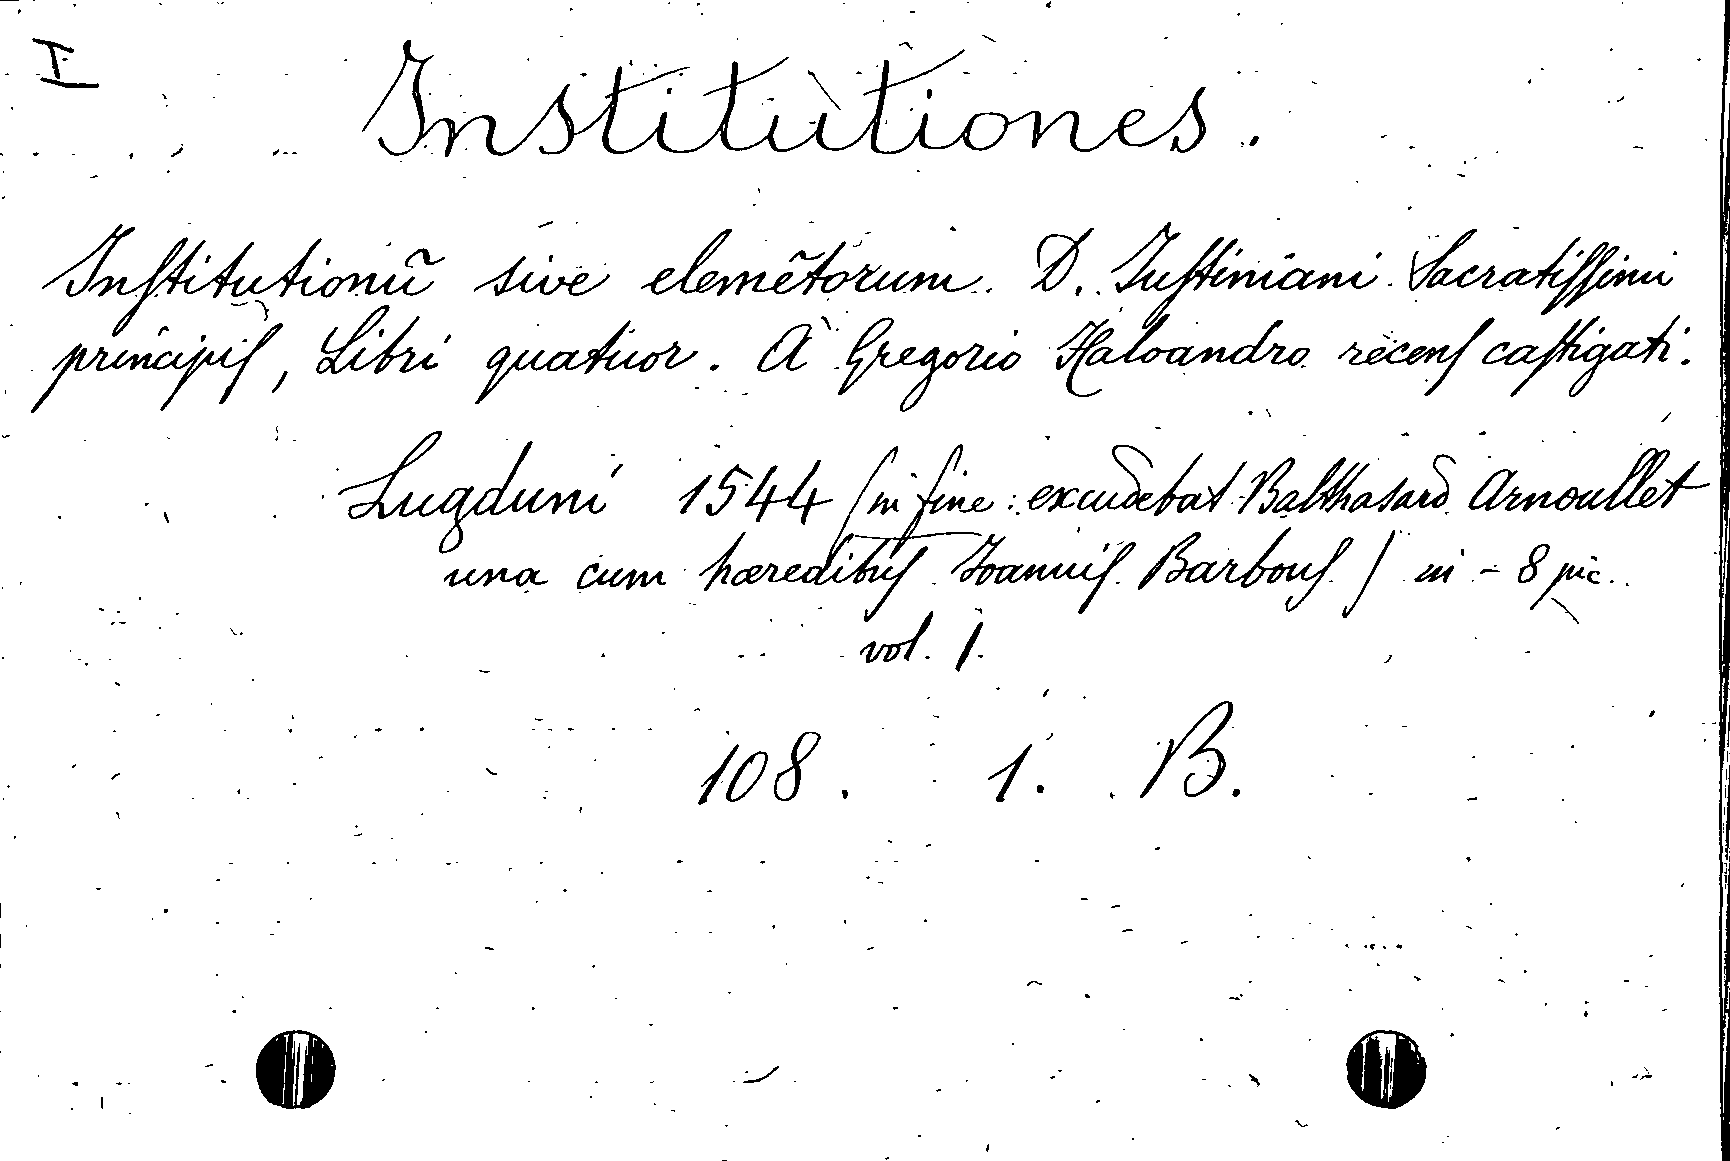 I
Institutiones.
Inſtitutionũ sive elemẽtorum. D. Iuſtiniani Sacratiſſimi
principiſ, Libri quatuor. A Gregorio Haloandro recenſ caſtigati.
Lugduni 1544 (in fine: excudebat Balthasard Arnoullet
una cum hæredibuſ Ioanniſ Barbouſ) in-8 pic.
vol. 1.
108. 1. B.